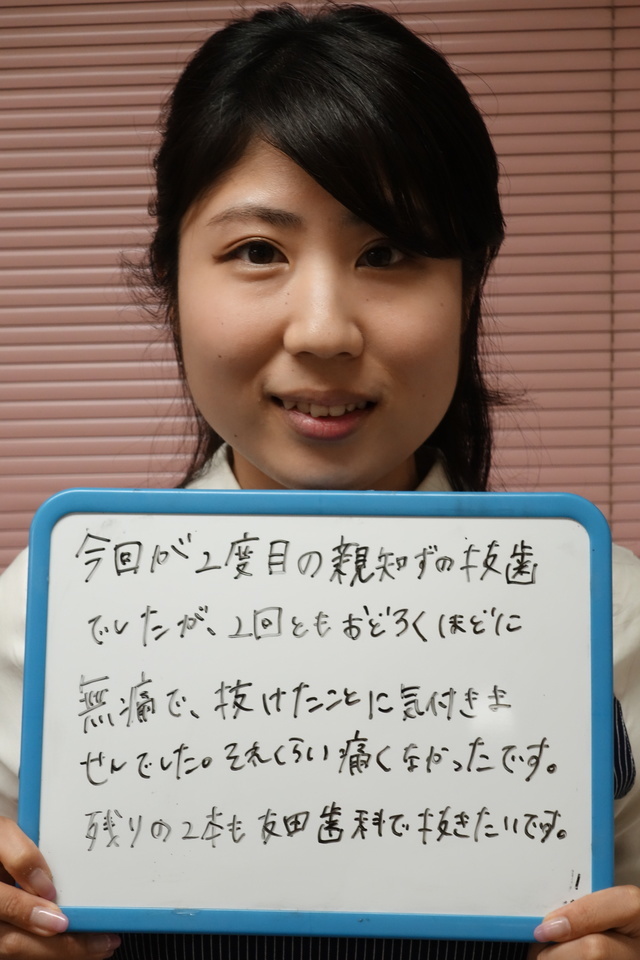 今回が2度目の親知ずの抜歯
でしたが、2回ともおどろくほどに
無痛で、抜けたことに気付きま
せんでした。それくらい痛くなかったです。
残りの2本も友田歯科で抜きたいです。
!!